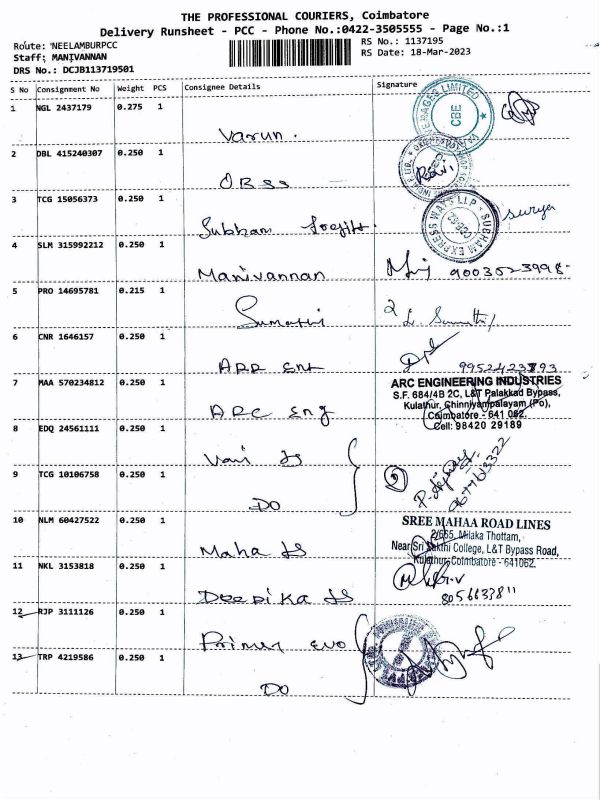 THE PROFESSIONAL COURIERS, Coimbatore
Delivery Runsheet - PCC - Phone No.:0422-3505555 - Page No.:1
Route: NEELAMBURPCC
RS No.: 1137195
Staff; MANIVANNAN
RS Date: 18-Mar-2023
DRS No.: DCJB113719501
S No Consignment No Weight PCS Consignee Details Signature
1 NGL 2437179 0.275 1
Varun.
2 DBL 415240307 0.250 1
Ravi
OBSS
3 TCG 15056373 0.250 1
SUBHAM EXPRESS WAYS LLP
Surya
Subham
4 SLM 315992212 0.250 1
Manivannan
9003523998
5 PRO 14695781 0.215 1
Sumathi
6 CNR 1646157 0.250 1
ARR Ent
7 MAA 570234812 0.250 1
ARC Eng
ARC ENGINEERING INDUSTRIES
S.F. 684/4B 2C, L&T Palakkad Bypass,
Kulathur, Chinniyampalayam (Po),
Coimbatore - 641 062.
Cell: 98420 29189
8 EDQ 24561111 0.250 1
Vani
9 TCG 10106758 0.250 1
DO
10 NLM 60427522 0.250 1
Maha
SREE MAHAA ROAD LINES
2/665, Milaka Thottam,
Near Sri Sakthi College, L&T Bypass Road,
Kulathur, Coimbatore - 641062.
11 NKL 3153818 0.250 1
Deepika
8056633811
12 RJP 3111126 0.250 1
Primer Evo
13 TRP 4219586 0.250 1
DO